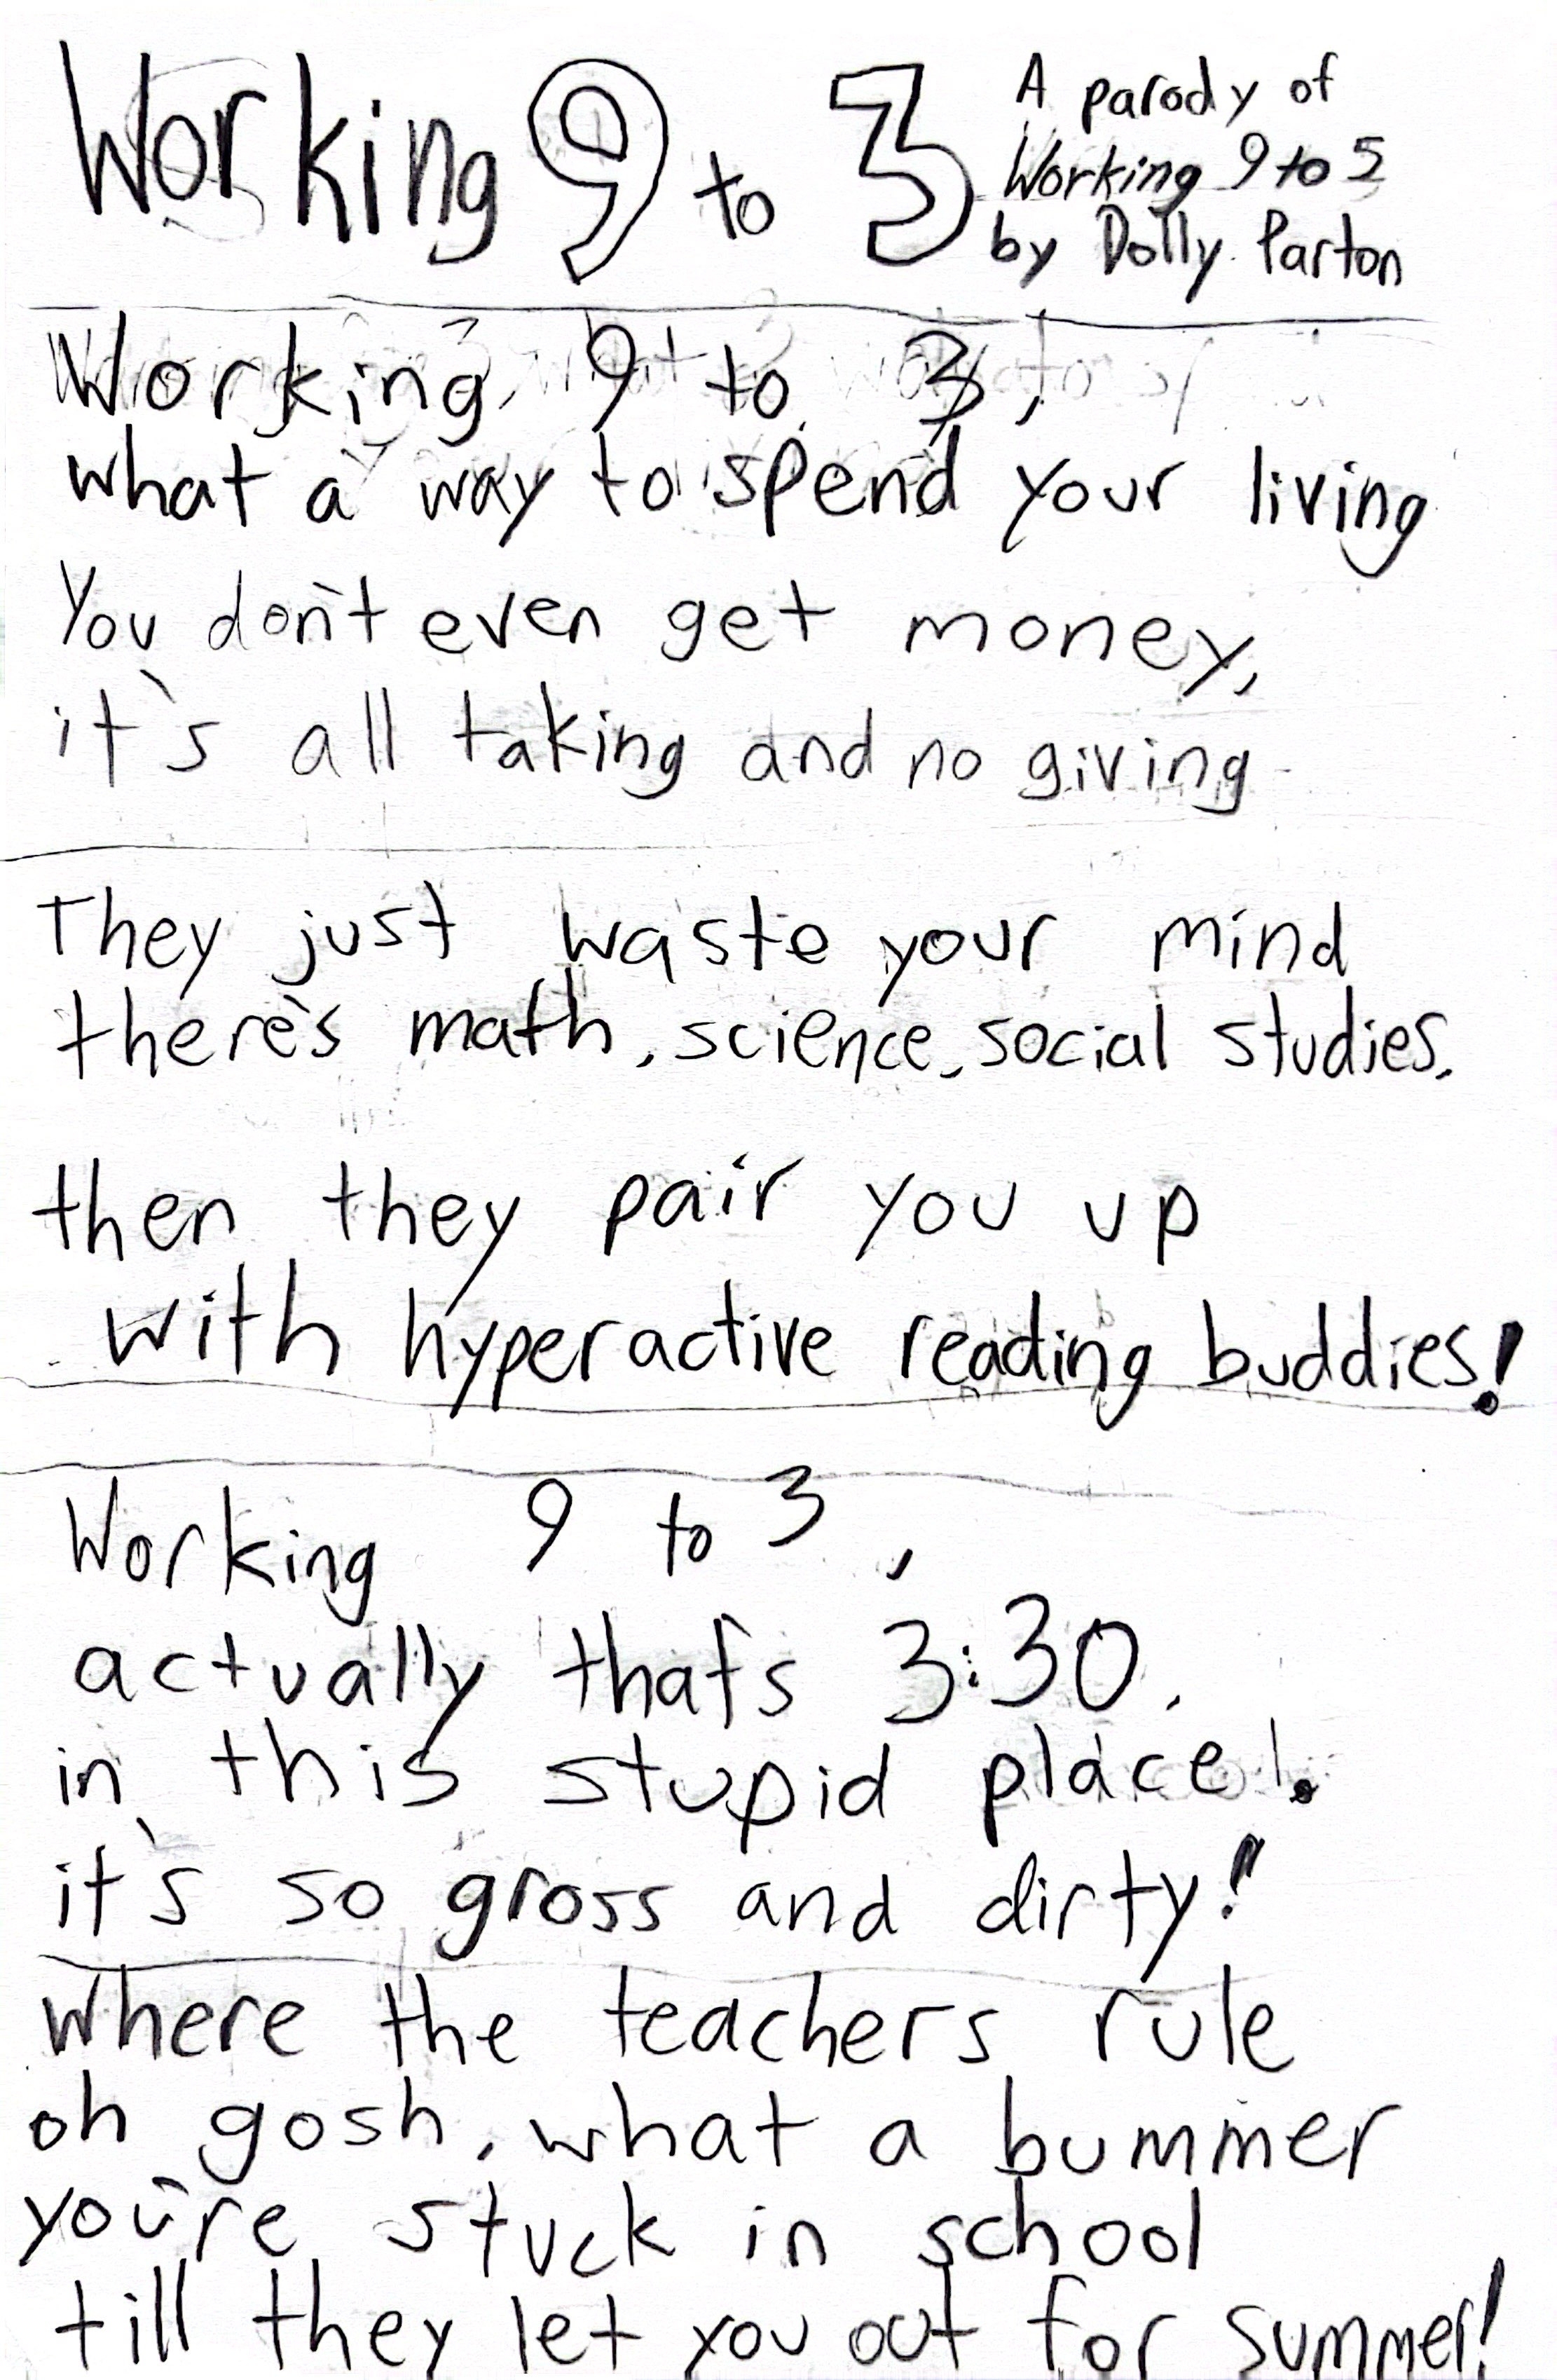 Working 9 to 3
A parody of
Working 9 to 5
by Dolly Parton
Working 9 to 3,
what a way to spend your living
You don't even get money,
it's all taking and no giving
They just waste your mind
there's math, science, social studies,
then they pair you up
with hyperactive reading buddies!
Working 9 to 3,
actually that's 3:30,
in this stupid place!
it's so gross and dirty!
Where the teachers rule
oh gosh, what a bummer
you're stuck in school
till they let you out for summer!